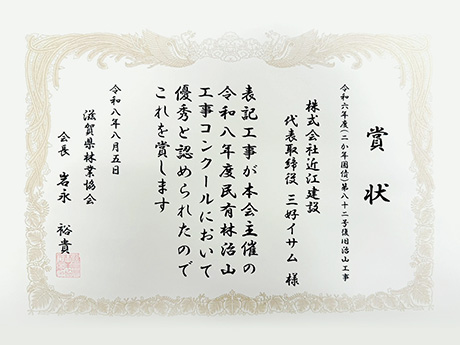 賞状
令和六年度(二か年国債)第八十二号復旧治山工事
株式会社近江建設
代表取締役 三好イサム 様
表記工事が本会主催の
令和八年度民有林治山
工事コンクールにおいて
優秀と認められたので
これを賞します
令和八年八月五日
滋賀県林業協会
会長 岩永 裕貴